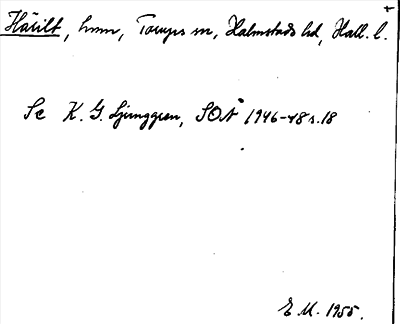 Härilt, hmn, Torups sn, Halmstads hd, Hall. l.
Se K. G. Ljunggren, SOÅ 1946-48 s. 18
E M. 1955.